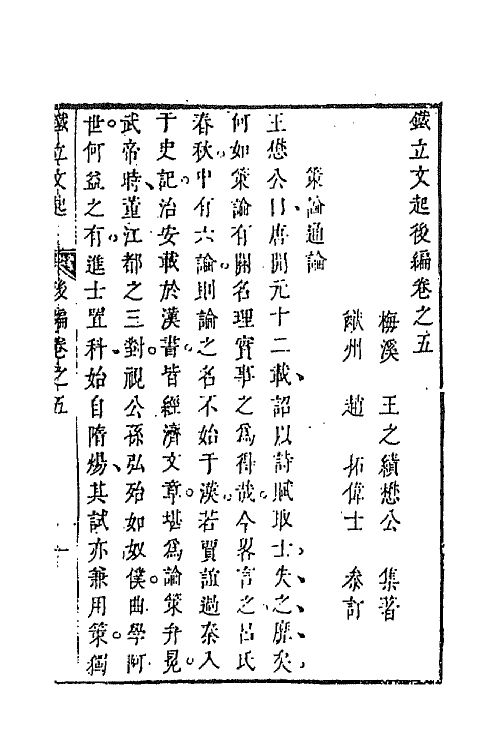 鐵立文起後編卷之五
梅溪 王之績懋公 集著
猷州 趙 拓偉士 叅訂
策論通論
王懋公曰唐開元十二載詔以詩賦取士失之靡矣
何如策論有關名理實事之為得哉今畧言之吕氏
春秋中有六論則論之名不始于漢若賈誼過秦入
于史記治安載於漢書皆經濟文章堪為論策弁冕
武帝時董江都之三對視公孫弘殆如奴僕曲學阿
世何益之有進士置科始自隋煬其試亦兼用策獨
鐵立文起 後編卷之五 一